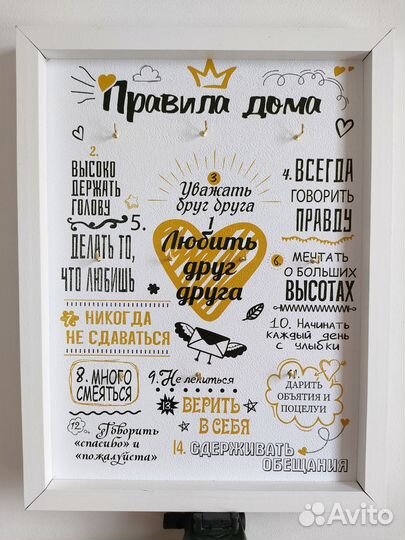 Правила дома
2.
ВЫСОКО
ДЕРЖАТЬ
ГОЛОВУ
3
Уважать
друг друга
4. ВСЕГДА
ГОВОРИТЬ
ПРАВДУ
5.
ДЕЛАТЬ ТО,
ЧТО ЛЮБИШЬ
1
Любить
друг
друга
6. МЕЧТАТЬ
О БОЛЬШИХ
ВЫСОТАХ
НИКОГДА
НЕ СДАВАТЬСЯ
10. Начинать
каждый день
с улыбки
8. МНОГО
СМЕЯТЬСЯ
9. Не лениться
ДАРИТЬ
ОБЪЯТИЯ И
ПОЦЕЛУИ
12.
Говорить
«спасибо» и
«пожалуйста»
13
ВЕРИТЬ
В СЕБЯ
14. СДЕРЖИВАТЬ
ОБЕЩАНИЯ
Avito